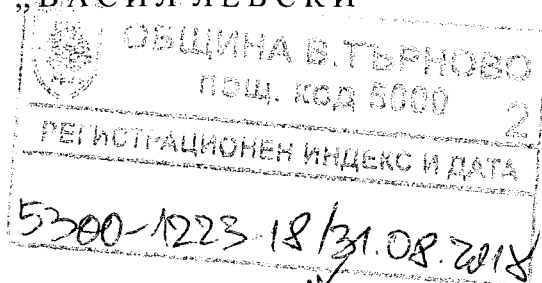 „ВАСИЛ ЛЕВСКИ“
ОБЩИНА В.ТЪРНОВО
пощ. код 5000 2
РЕГИСТРАЦИОНЕН ИНДЕКС И ДАТА
5300-1223-18/31.08.2018